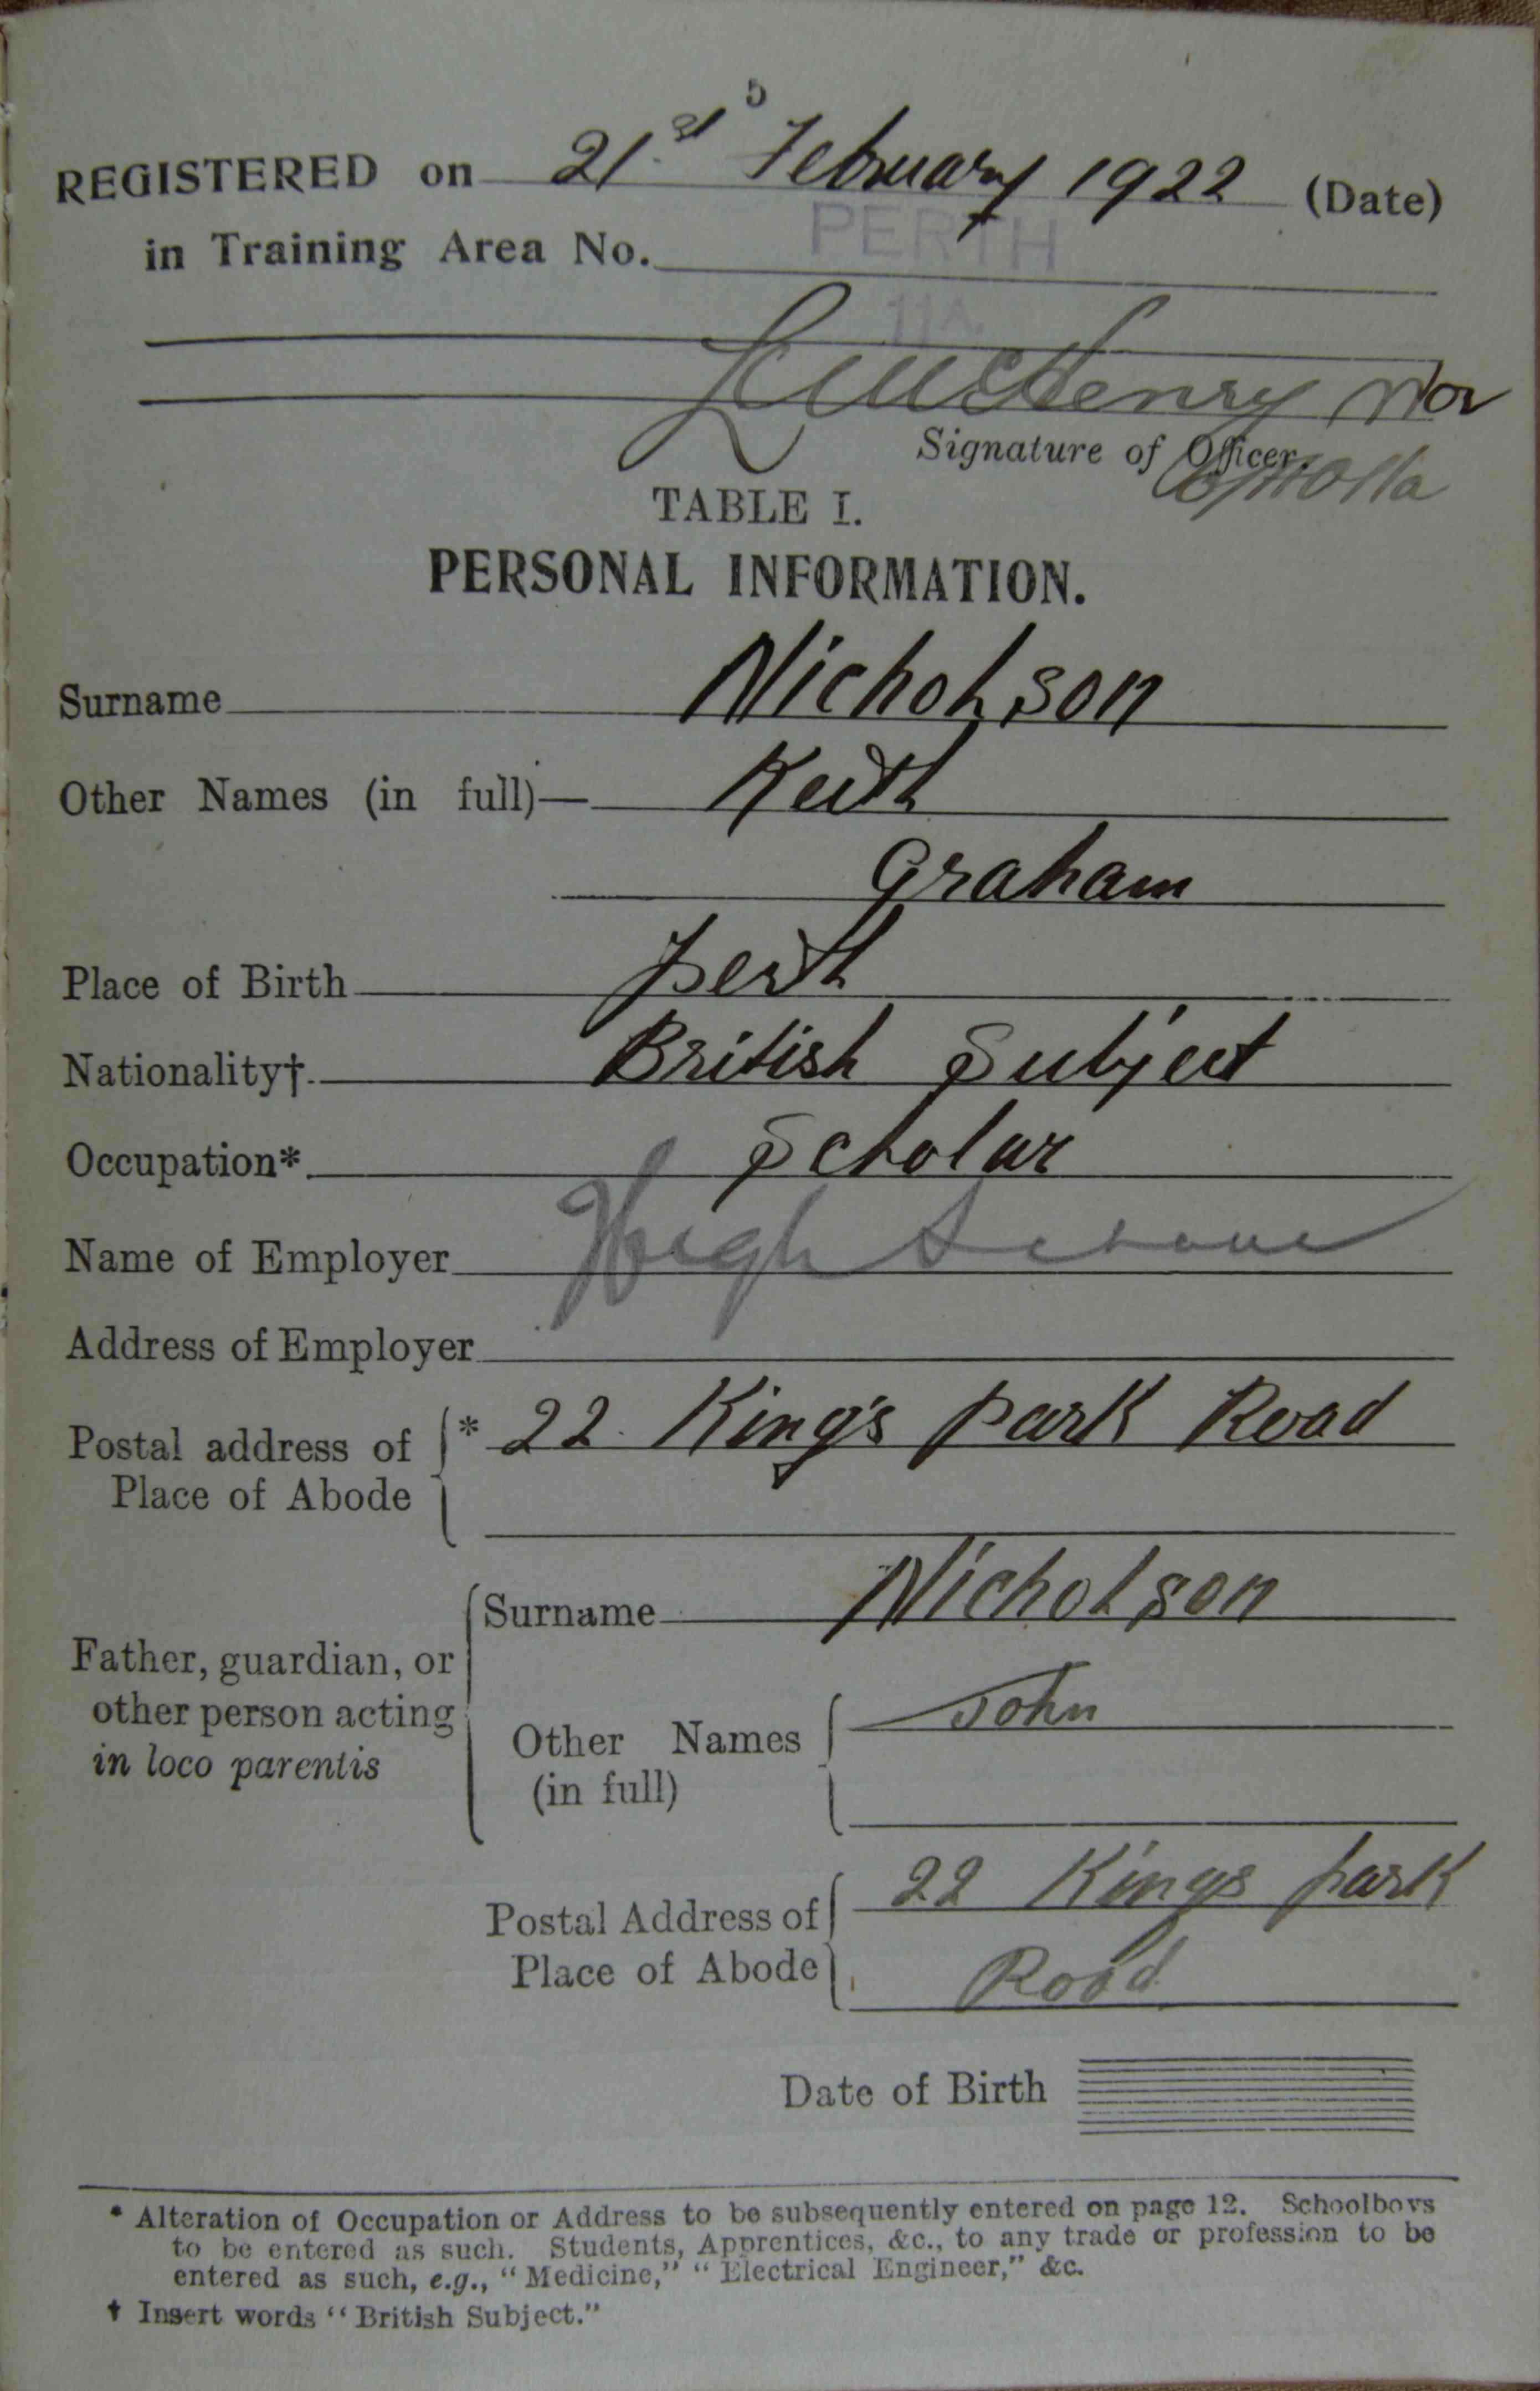 5
REGISTERED on 21st February 1922 (Date)
in Training Area No. PERTH
11A.
Henry
Signature of Officer.
TABLE I.
PERSONAL INFORMATION.
Surname Nicholson
Other Names (in full)— Keith
Graham
Place of Birth Perth
Nationality† British Subject
Occupation* Scholar
Name of Employer High School
Address of Employer
Postal address of Place of Abode * 22 King's Park Road
Father, guardian, or other person acting in loco parentis
Surname Nicholson
Other Names (in full) John
Postal Address of Place of Abode 22 Kings Park
Road
Date of Birth
* Alteration of Occupation or Address to be subsequently entered on page 12. Schoolboys
to be entered as such. Students, Apprentices, &c., to any trade or profession to be
entered as such, e.g., "Medicine," "Electrical Engineer," &c.
† Insert words "British Subject."